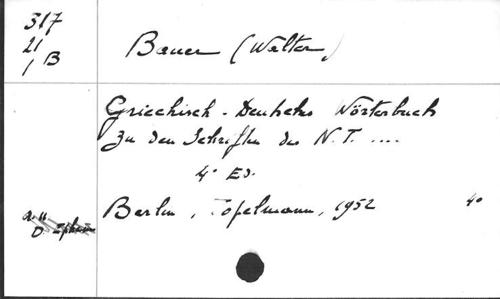 317
21
1 B
Bauer (Walter)
Griechisch - Deutsches Wörterbuch
zu den Schriften des N.T. ....
4° Ed.
Berlin, Töpelmann, 1952 40